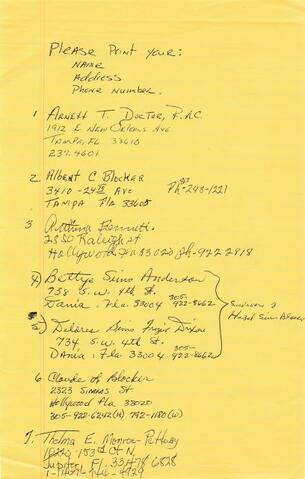 Please Print your:
Name
Address
Phone Number.
1 Arnett T. Doctor, P.A.C.
1912 E. New Orleans Ave
Tampa, FL 33610
237-4601
2. Albert C Blocker
3410 - 24th Ave Ph- 248-1221
Tampa Fla 33605
3 Bennett
2330 Raleigh St
Hollywood, Fla 33020 ph-922-2818
4) Bettye Sims Anderson
738 S.W. 4th St. 305-
Dania, Fla. 33004 922-8662
5) Delores Sims Dixon
734 S.W. 4th St. 305-
Dania, Fla. 33004 922-8662
Hazel Sims
6. Claude A Blocker
2323 St
Hollywood Fla 33020
305-922-6242(H) 792-1180(W)
7. Thelma E. Monroe-Pethway
153rd Ct N.
Jupiter, Fl. 33478